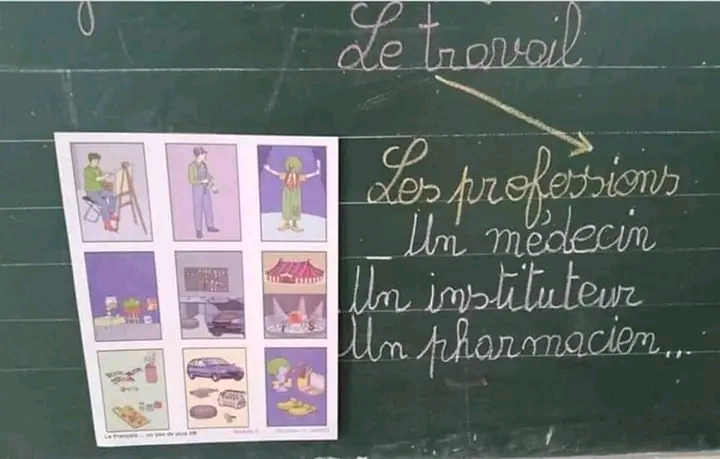 Le travail
Les professions
_ Un médecin
Un instituteur
Un pharmacien...
Le Français ... un peu de plus